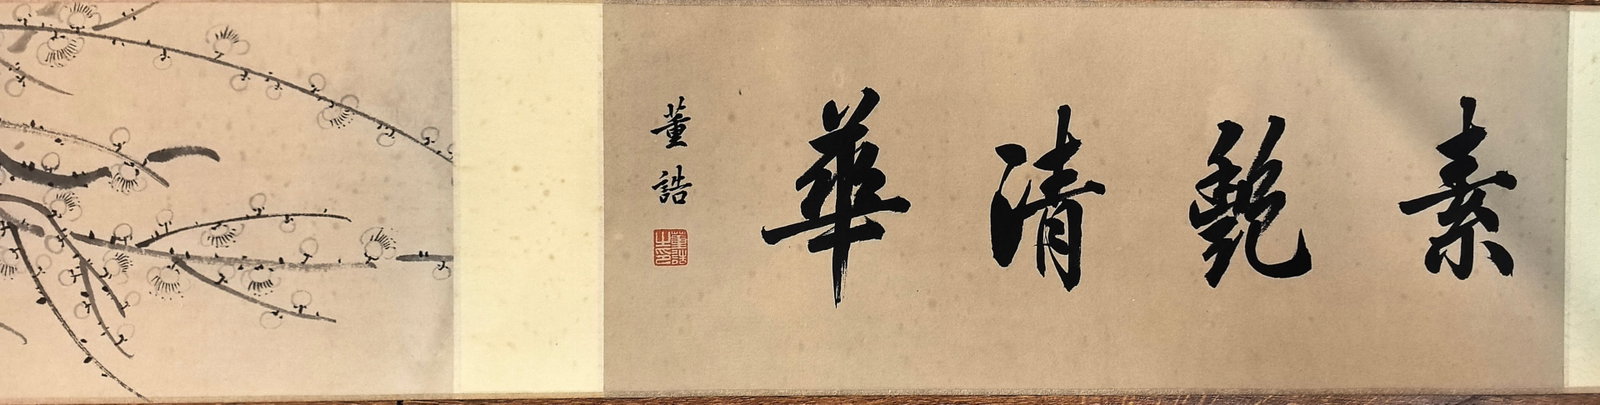 素艷清華
董誥
董誥之印